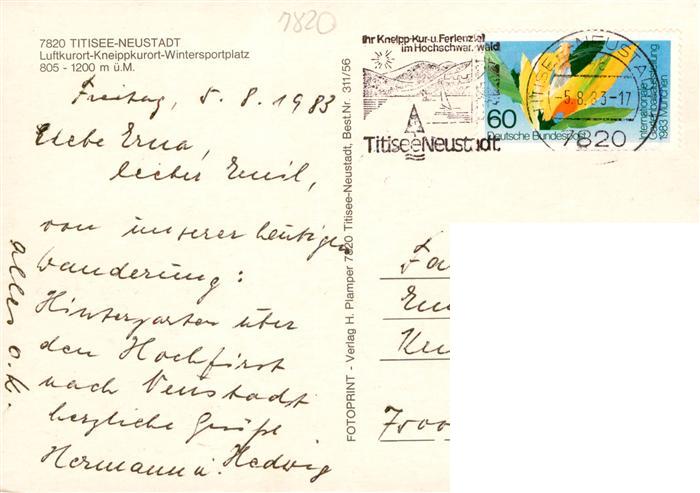 7820
7820 TITISEE-NEUSTADT
Luftkurort-Kneippkurort-Wintersportplatz
805 - 1200 m ü.M.
Freitag, 5.8.1983
Liebe Erna,
lieber Emil,
von unserer heutigen
Wanderung:
Hinterzarten über
den Hochfirst
nach Neustadt
herzliche Grüße
Hermann u. Hedwig
alles o.k.
FOTOPRINT - Verlag H. Plamper 7820 Titisee-Neustadt, Best.Nr. 311/56
Ihr Kneipp-Kur-u. Ferienziel
im Hochschwarzwald
Titisee Neustadt
TITISEE-NEUSTADT
-5.8.83-17
7820
60
Deutsche Bundespost
Internationale
Gartenbauausstellung
1983 München
Fa
Em
7000